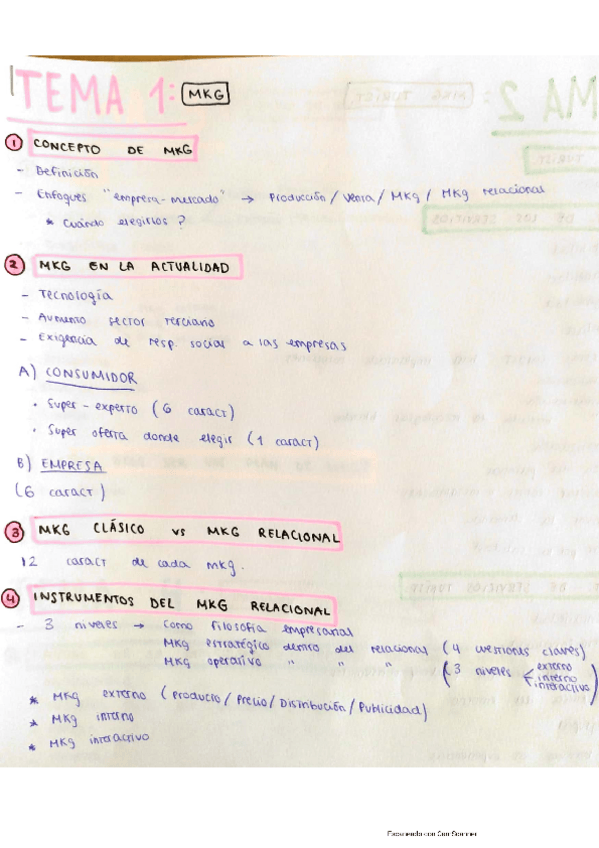 TEMA 1: MKG
1 CONCEPTO DE MKG
- Definición
- Enfoques "empresa-mercado" → Producción / Venta / MKG / MKG relacional
* Cuándo elegirlos?
2 MKG EN LA ACTUALIDAD
- Tecnología
- Aumento sector terciario
- Exigencia de resp. social a las empresas
A) CONSUMIDOR
· Super-experto (6 caract)
· Super oferta donde elegir (1 caract)
B) EMPRESA
(6 caract)
3 MKG CLÁSICO vs MKG RELACIONAL
12 caract de cada mkg.
4 INSTRUMENTOS DEL MKG RELACIONAL
- 3 niveles → Como filosofía empresarial
MKG estratégico dentro del relacional (4 cuestiones claves)
MKG operativo " " " (3 niveles externo interno interactivo)
* MKG externo (Producto / Precio / Distribución / Publicidad)
* MKG interno
* MKG interactivo
Escaneado con CamScanner